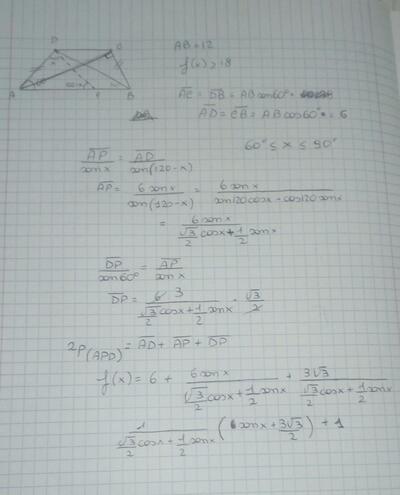 D C
A P B
AB = 12
f(x) > 18
AC = DB = AB sen60° =
AD = CB = AB cos60° = 6
60° ≤ x ≤ 90°
AP/senx = AD/sen(120-x)
AP = 6senx/sen(120-x) = 6senx/sen120cosx - cos120senx
= 6senx/(√3/2 cosx + 1/2 senx)
DP/sen60° = AP/senx
DP = 6 3/(√3/2 cosx + 1/2 senx) · √3/2
2P(APD) = AD + AP + DP
f(x) = 6 + 6senx/(√3/2 cosx + 1/2 senx) + 3√3/(√3/2 cosx + 1/2 senx)
1/(√3/2 cosx + 1/2 senx) (6senx + 3√3/2) + 1